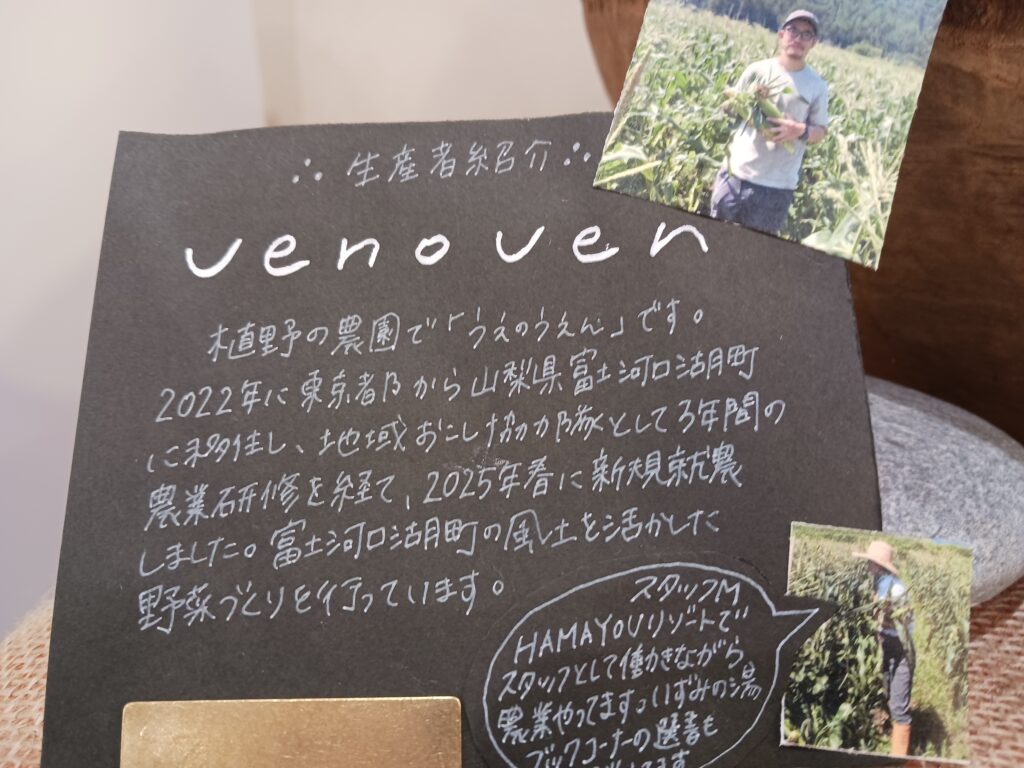 ∴ 生産者紹介 ∴
uenouen
植野の農園で「うえのうえん」です。
2022年に東京都から山梨県富士河口湖町
に移住し、地域おこし協力隊として3年間の
農業研修を経て、2025年春に新規就農
しました。富士河口湖町の風土を活かした
野菜づくりを行っています。
スタッフM
HAMAYOUリゾートで
スタッフとして働きながら
農業やってます。いずみの湯
ブックコーナーの選書も